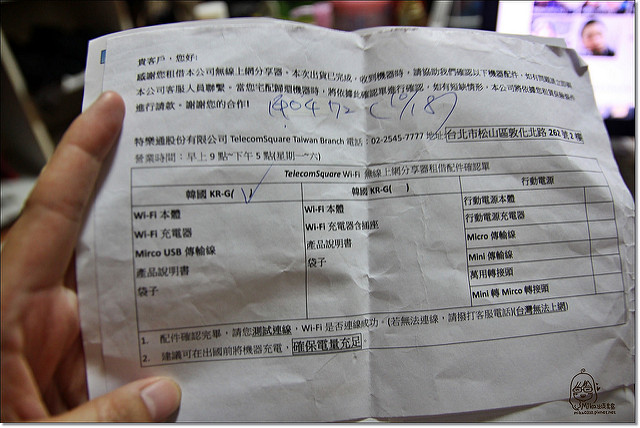 貴客戶,您好:
感謝您租借本公司無線上網分享器。本次出貨已完成,收到機器時,請協助我們確認以下機器配件,如有問題
本公司客服人員聯繫。當您宅配歸還機器時,將依據此確認單進行確認,如有短缺情形,本公司將依據您租賃
進行請款。謝謝您的合作!
140472 (10/18)
特樂通股份有限公司 TelecomSquare Taiwan Branch 電話:02-2545-7777 地址:台北市松山區敦化北路 261 號 2 樓
營業時間:早上 9 點~下午 5 點(星期一~六)
TelecomSquare Wi-Fi 無線上網分享器租借配件確認單
韓國 KR-G( ✓
韓國 KR-G( )
行動電源
Wi-Fi 本體
Wi-Fi 充電器
Mirco USB 傳輸線
產品說明書
袋子
Wi-Fi 本體
Wi-Fi 充電器含插座
產品說明書
袋子
行動電源本體
行動電源充電器
Micro 傳輸線
Mini 傳輸線
萬用轉接頭
Mini 轉 Mirco 轉接頭
1. 配件確認完畢,請您測試連線,Wi-Fi 是否連線成功。(若無法連線,請撥打客服電話)(台灣無法上網)
2. 建議可在出國前將機器充電,確保電量充足。